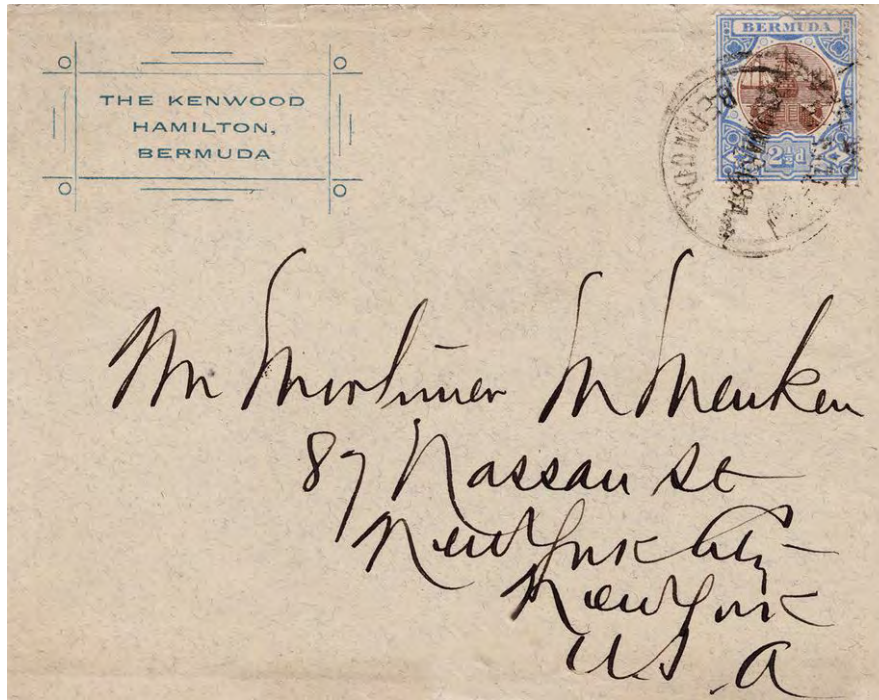 THE KENWOOD
HAMILTON,
BERMUDA
BERMUDA
2½d
BERMUDA
Mr Mortimer M Menken
87 Nassau St
New York City
New York
U.S.A